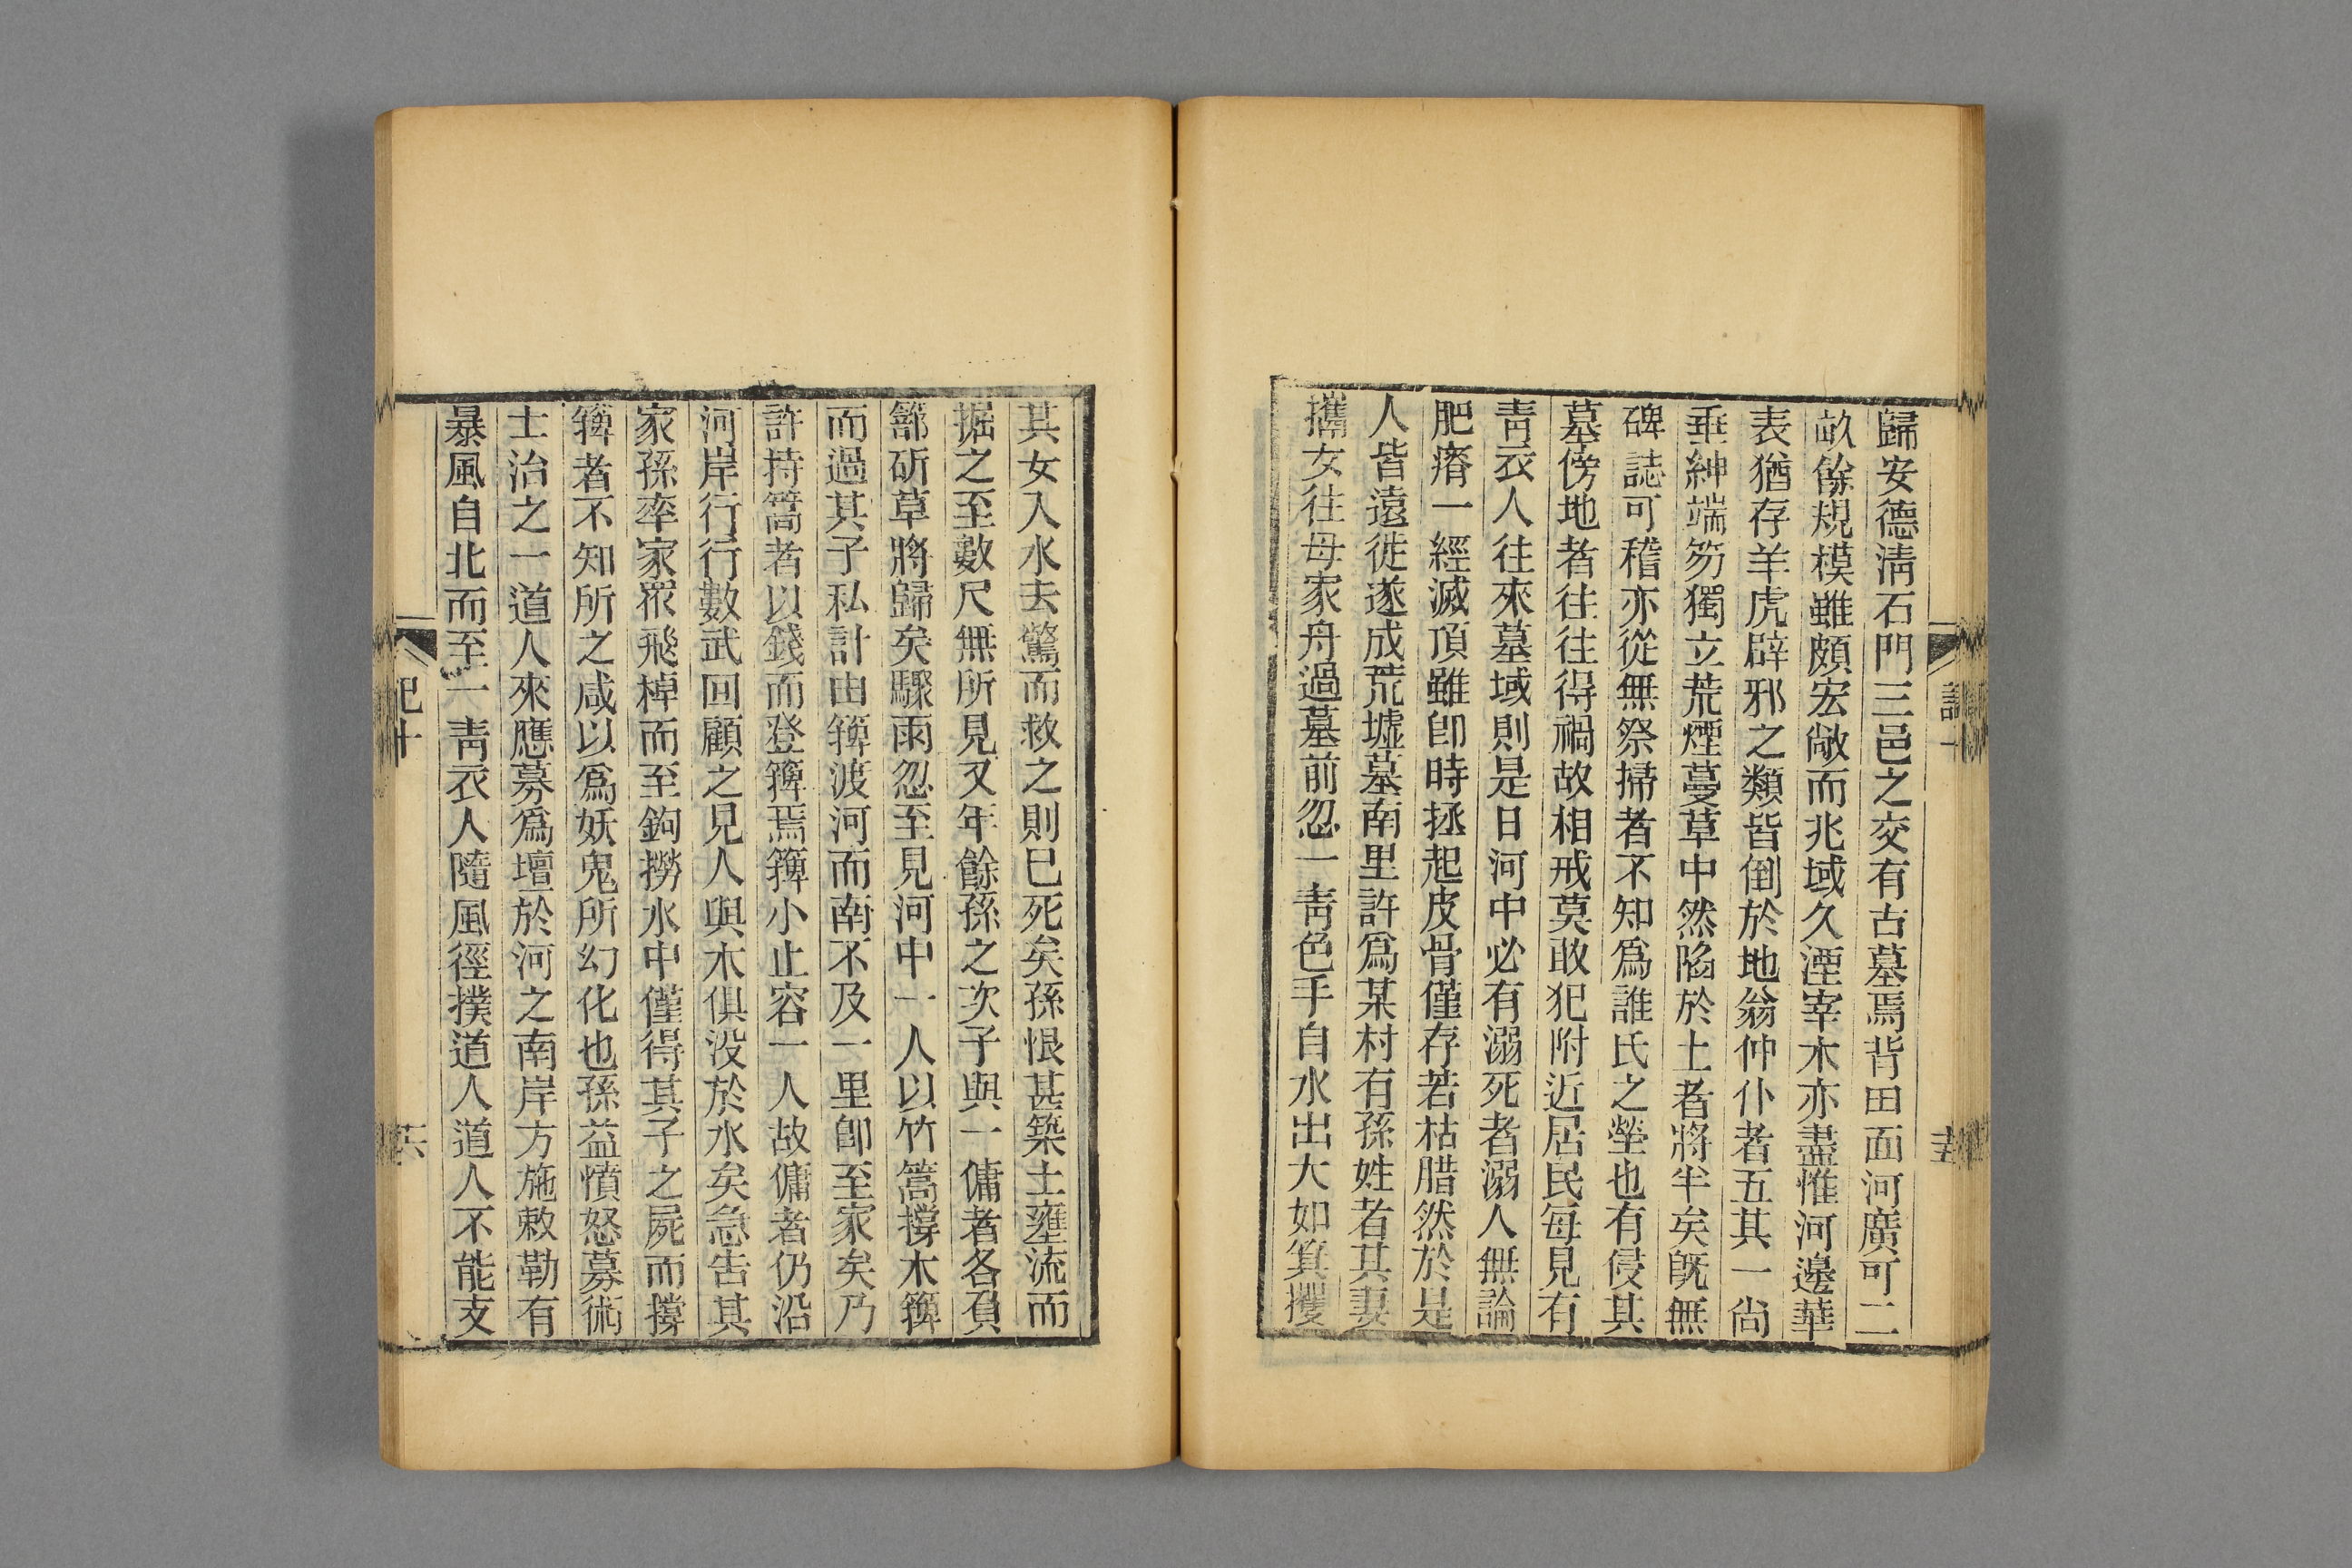 歸安德淸石門三邑之交有古墓焉背田面河廣可二
畝餘規模雖頗宏敞而兆域久湮宰木亦盡惟河邊華
表猶存羊虎辟邪之類皆倒於地翁仲仆者五其一尙
垂紳端笏獨立荒煙蔓草中然陷於土者將半矣旣無
碑誌可稽亦從無祭掃者不知爲誰氏之塋也有侵其
墓傍地者往往得禍故相戒莫敢犯附近居民每見有
靑衣人往來墓域則是日河中必有溺死者溺人無論
肥瘠一經滅頂雖卽時拯起皮骨僅存若枯腊然於是
人皆遠徙遂成荒墟墓南里許爲某村有孫姓者其妻
攜女往母家舟過墓前忽一靑色手自水出大如箕攫
其女入水去驚而救之則已死矣孫恨甚築土壅流而
掘之至數尺無所見又年餘孫之次子與一傭者各負
篰斫草將歸矣驟雨忽至見河中一人以竹篙撐木簰
而過其子私計由簰渡河而南不及一里卽至家矣乃
許持篙者以錢而登簰焉簰小止容一人故傭者仍沿
河岸行行數武回顧之見人與木俱沒於水矣急吿其
家孫率家眾飛棹而至鉤撈水中僅得其子之屍而撐
簰者不知所之咸以爲妖鬼所幻化也孫益憤怒募術
士治之一道人來應募爲壇於河之南岸方施敕勒有
暴風自北而至一靑衣人隨風徑撲道人道人不能支